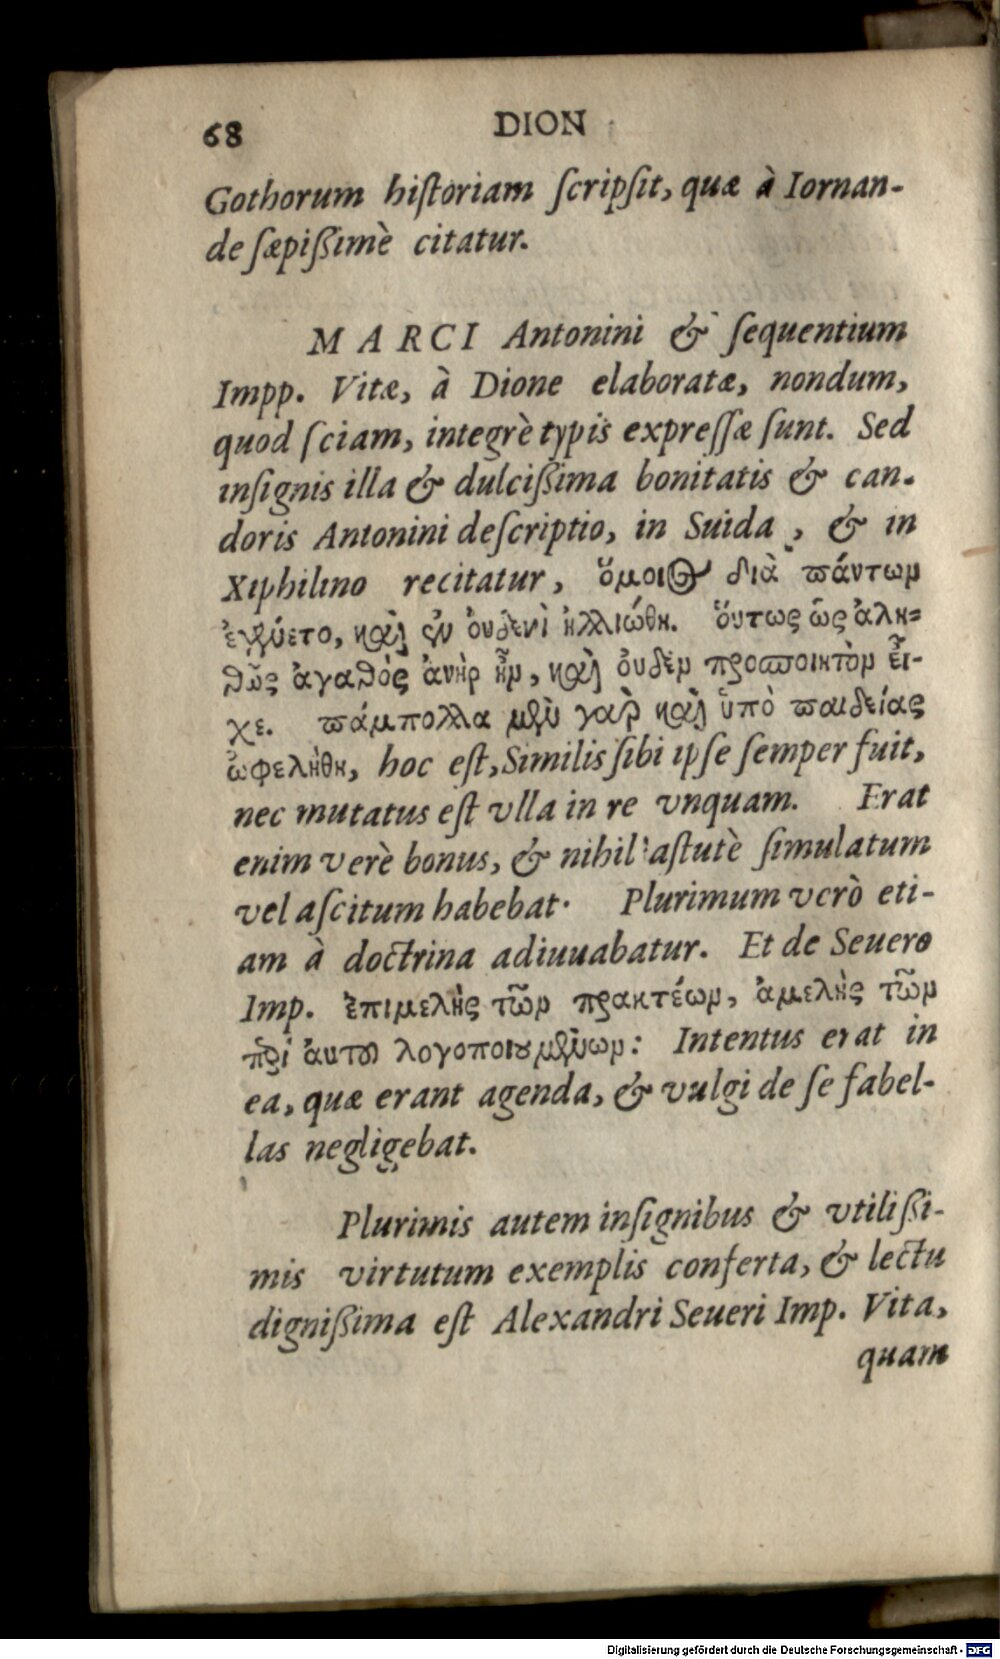 68 DION
Gothorum hiſtoriam ſcripſit, quæ à Iornan-
de ſæpißimè citatur.
MARCI Antonini & ſequentium
Impp. Vitæ, à Dione elaboratæ, nondum,
quod ſciam, integrè typis expreſſæ ſunt. Sed
inſignis illa & dulcißima bonitatis & can-
doris Antonini deſcriptio, in Suida, & in
Xiphilino recitatur, ὅμοιος διὰ πάντων
ἐγένετο, καὶ ἐν ὀυδενὶ ἠλλιώθη. ὅυτως ὥς ἀλη=
θῶς ἀγαθὸς ἀνὴρ ἦν, καὶ ὀυδὲν προσποιητὸν εἶ-
χε. πάμπολλα μὲν γαρ καὶ ὑπὸ παιδείας
ὠφελήθη, hoc eſt, Similis ſibi ipſe ſemper fuit,
nec mutatus eſt vlla in re vnquam. Erat
enim verè bonus, & nihil aſtutè ſimulatum
vel aſcitum habebat. Plurimum verò eti-
am à doctrina adiuuabatur. Et de Seuero
Imp. ἐπιμελὴς τῶν πρακτέων, ἀμελὴς τῶν
περὶ ἀυτοῦ λογοποιουμένων: Intentus erat in
ea, quæ erant agenda, & vulgi de ſe fabel-
las negligebat.
Plurimis autem inſignibus & vtilißi-
mis virtutum exemplis conferta, & lectu
dignißima eſt Alexandri Seueri Imp. Vita,
quam
Digitalisierung gefördert durch die Deutsche Forschungsgemeinschaft - DFG